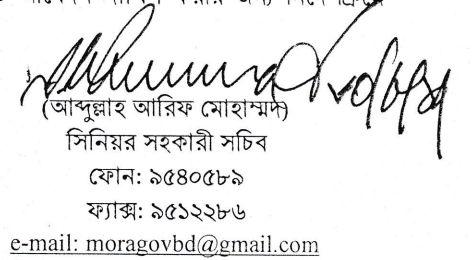 (আব্দুল্লাহ আরিফ মোহাম্মদ)
সিনিয়র সহকারী সচিব
ফোন: ৯৫৪০৫৮৯
ফ্যাক্স: ৯৫১২২৮৬
e-mail: moragovbd@gmail.com